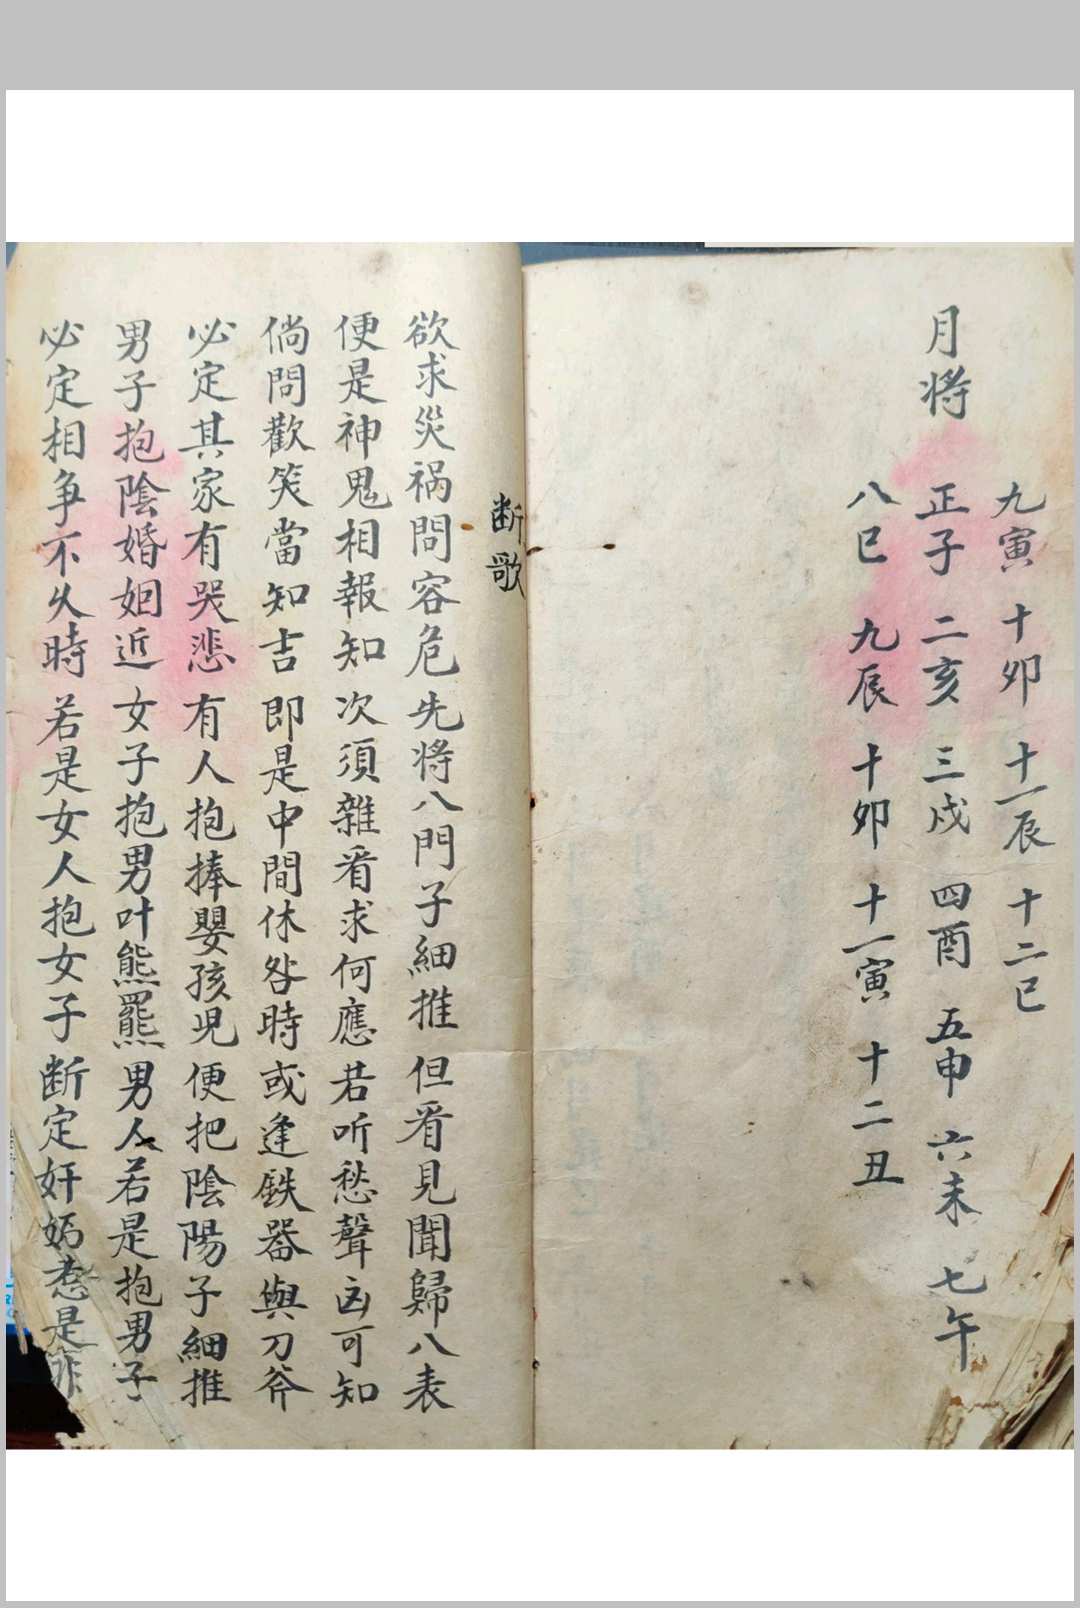 九寅 十卯 十一辰 十二巳
月将 正子 二亥 三戌 四酉 五申 六未 七午
八巳 九辰 十卯 十一寅 十二丑
断歌
欲求災禍問容危先将八門子細推但看見聞歸八表
便是神鬼相報知次須雜看求何應若听愁聲凶可知
倘問歡笑當知吉即是中間休咎時或逢鉄器與刀斧
必定其家有哭悲有人抱捧嬰孩児便把陰陽子細推
男子抱陰婚姻近女子抱男叶熊羆男人若是抱男子
必定相争不久時若是女人抱女子断定奸惹是非